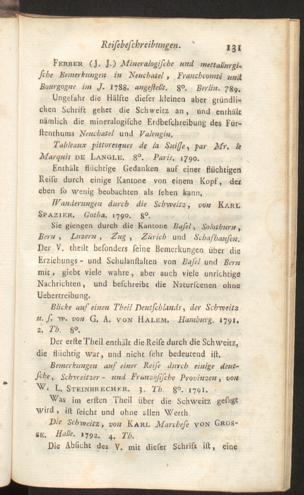 Reisebeschreibungen. 131
FERBER (J. J.) Mineralogische und mettallurgi-
sche Bemerkungen in Neuchatel, Franchcomté und
Bourgogne im J. 1788. angestellt. 8°. Berlin. 789.
Ungefähr die Hälfte dieser kleinen aber gründli-
chen Schrift gehet die Schweitz an, und enthält
nämlich die mineralogische Erdbeschreibung des Für-
stenthums Neuchatel und Valengin.
Tableaux pittoresques de la Suisse, par Mr. le
Marquis DE LANGLE. 8°. Paris. 1790.
Enthält flüchtige Gedanken auf einer flüchtigen
Reise durch einige Kantone von einem Kopf, der
eben so wenig beobachten als sehen kann.
Wanderungen durch die Schweitz, von KARL
SPAZIER. Gotha. 1790. 8°.
Sie giengen durch die Kantone Basel, Solothurn,
Bern, Luzern, Zug, Zürich und Schafhausen.
Der V. theilt besonders seine Bemerkungen über die
Erziehungs- und Schulanstalten von Basel und Bern
mit, giebt viele wahre, aber auch viele unrichtige
Nachrichten, und beschreibt die Naturscenen ohne
Uebertreibung.
Blicke auf einen Theil Deutschlands, der Schweitz
u. s. w. von G. A. VON HALEM. Hamburg. 1791.
2. Th. 8°.
Der erste Theil enthält die Reise durch die Schweitz,
die flüchtig war, und nicht sehr bedeutend ist.
Bemerkungen auf einer Reise durch einige deut-
sche, Schweitzer- und Französische Provinzen, von
W. L. STEINBRECHER. 3. Th. 8°. 1791.
Was im ersten Theil über die Schweitz gesagt
wird, ist seicht und ohne allen Werth
Die Schweitz, von KARL Marchese VON GROS-
SE. Halle. 1792. 4. Th.
Die Absicht des V. mit dieser Schrift ist, eine